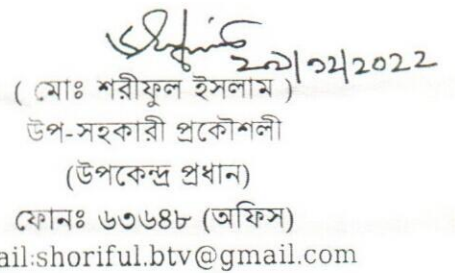 ২৯/১২/২০২২
( মোঃ শরীফুল ইসলাম )
উপ-সহকারী প্রকৌশলী
(উপকেন্দ্র প্রধান)
ফোনঃ ৬৩৬৪৮ (অফিস)
ail:shoriful.btv@gmail.com